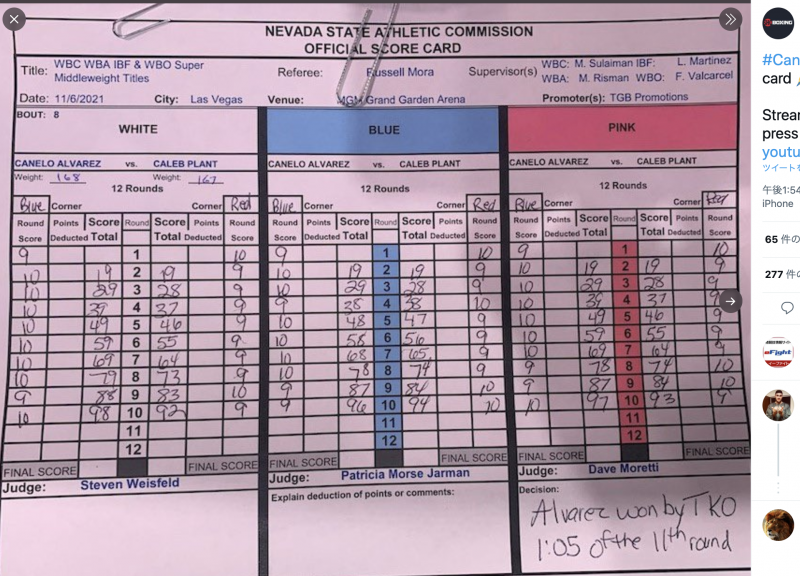 NEVADA STATE ATHLETIC COMMISSION
OFFICIAL SCORE CARD
Title: WBC WBA IBF & WBO Super Middleweight Titles
Referee: Russell Mora
Supervisor(s) WBC: M. Sulaiman IBF: L. Martinez
WBA: M. Risman WBO: F. Valcarcel
Date: 11/6/2021 City: Las Vegas Venue: MGM Grand Garden Arena Promoter(s): TGB Promotions
BOUT: 8
WHITE
CANELO ALVAREZ vs. CALEB PLANT
Weight: 168 Weight: 167
12 Rounds
Blue Corner Corner Red
Round Score Points Deducted Score Total Round Score Total Points Deducted Round Score
9 1 10
10 19 2 19 9
10 29 3 28 9
10 39 4 37 9
10 49 5 46 9
10 59 6 55 9
10 69 7 64 9
10 79 8 73 9
9 88 9 83 10
10 98 10 92 9
11
12
FINAL SCORE FINAL SCORE
Judge: Steven Weisfeld
BLUE
CANELO ALVAREZ vs. CALEB PLANT
12 Rounds
Blue Corner Corner Red
Round Score Points Deducted Score Total Round Score Total Points Deducted Round Score
9 1 10
10 19 2 19 9
10 29 3 28 9
9 38 4 38 10
10 48 5 47 9
10 58 6 56 9
10 68 7 65 9
10 78 8 74 9
9 87 9 84 10
9 96 10 94 10
11
12
FINAL SCORE FINAL SCORE
Judge: Patricia Morse Jarman
Explain deduction of points or comments:
PINK
CANELO ALVAREZ vs. CALEB PLANT
12 Rounds
Blue Corner Corner Red
Round Score Points Deducted Score Total Round Score Total Points Deducted Round Score
9 1 10
10 19 2 19 9
10 29 3 28 9
10 39 4 37 9
10 49 5 46 9
10 59 6 55 9
10 69 7 64 9
9 78 8 74 10
9 87 9 84 10
10 97 10 93 9
11
12
FINAL SCORE FINAL SCORE
Judge: Dave Moretti
Decision:
Alvarez won by TKO
1:05 of the 11th round
BOXING
#Can
card
Strear
press
youtu
ツイートを
午後1:54
iPhone
65 件の
277 件の
eFight